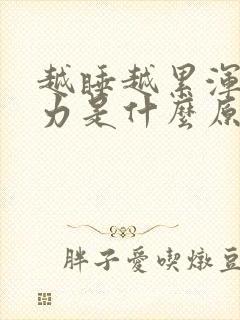 越睡越累渾
力是什麼原
胖子愛喫燉豆